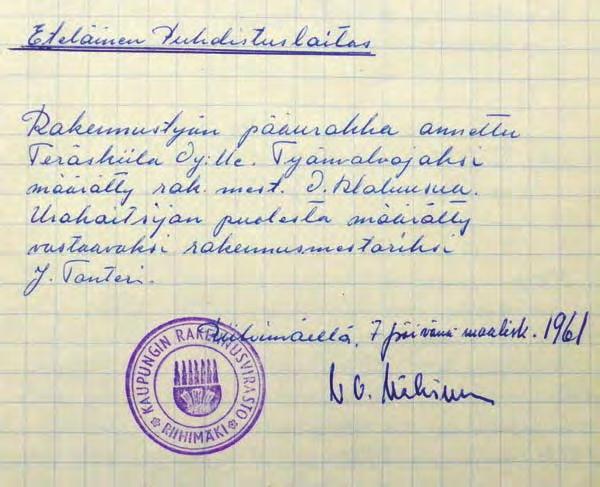 Eteläinen Puhdistuslaitos
Rakennustyön pääurakka annettu
Teräskiila Oy:lle. Työnvalvojaksi
määrätty rak. mest. O.
Urakoitsijan puolesta määrätty
vastaavaksi rakennusmestariksi
J. Tanteri.
Riihimäellä, 7 päivänä maalisk. 1961
KAUPUNGIN RAKENNUSVIRASTO
RIIHIMÄKI